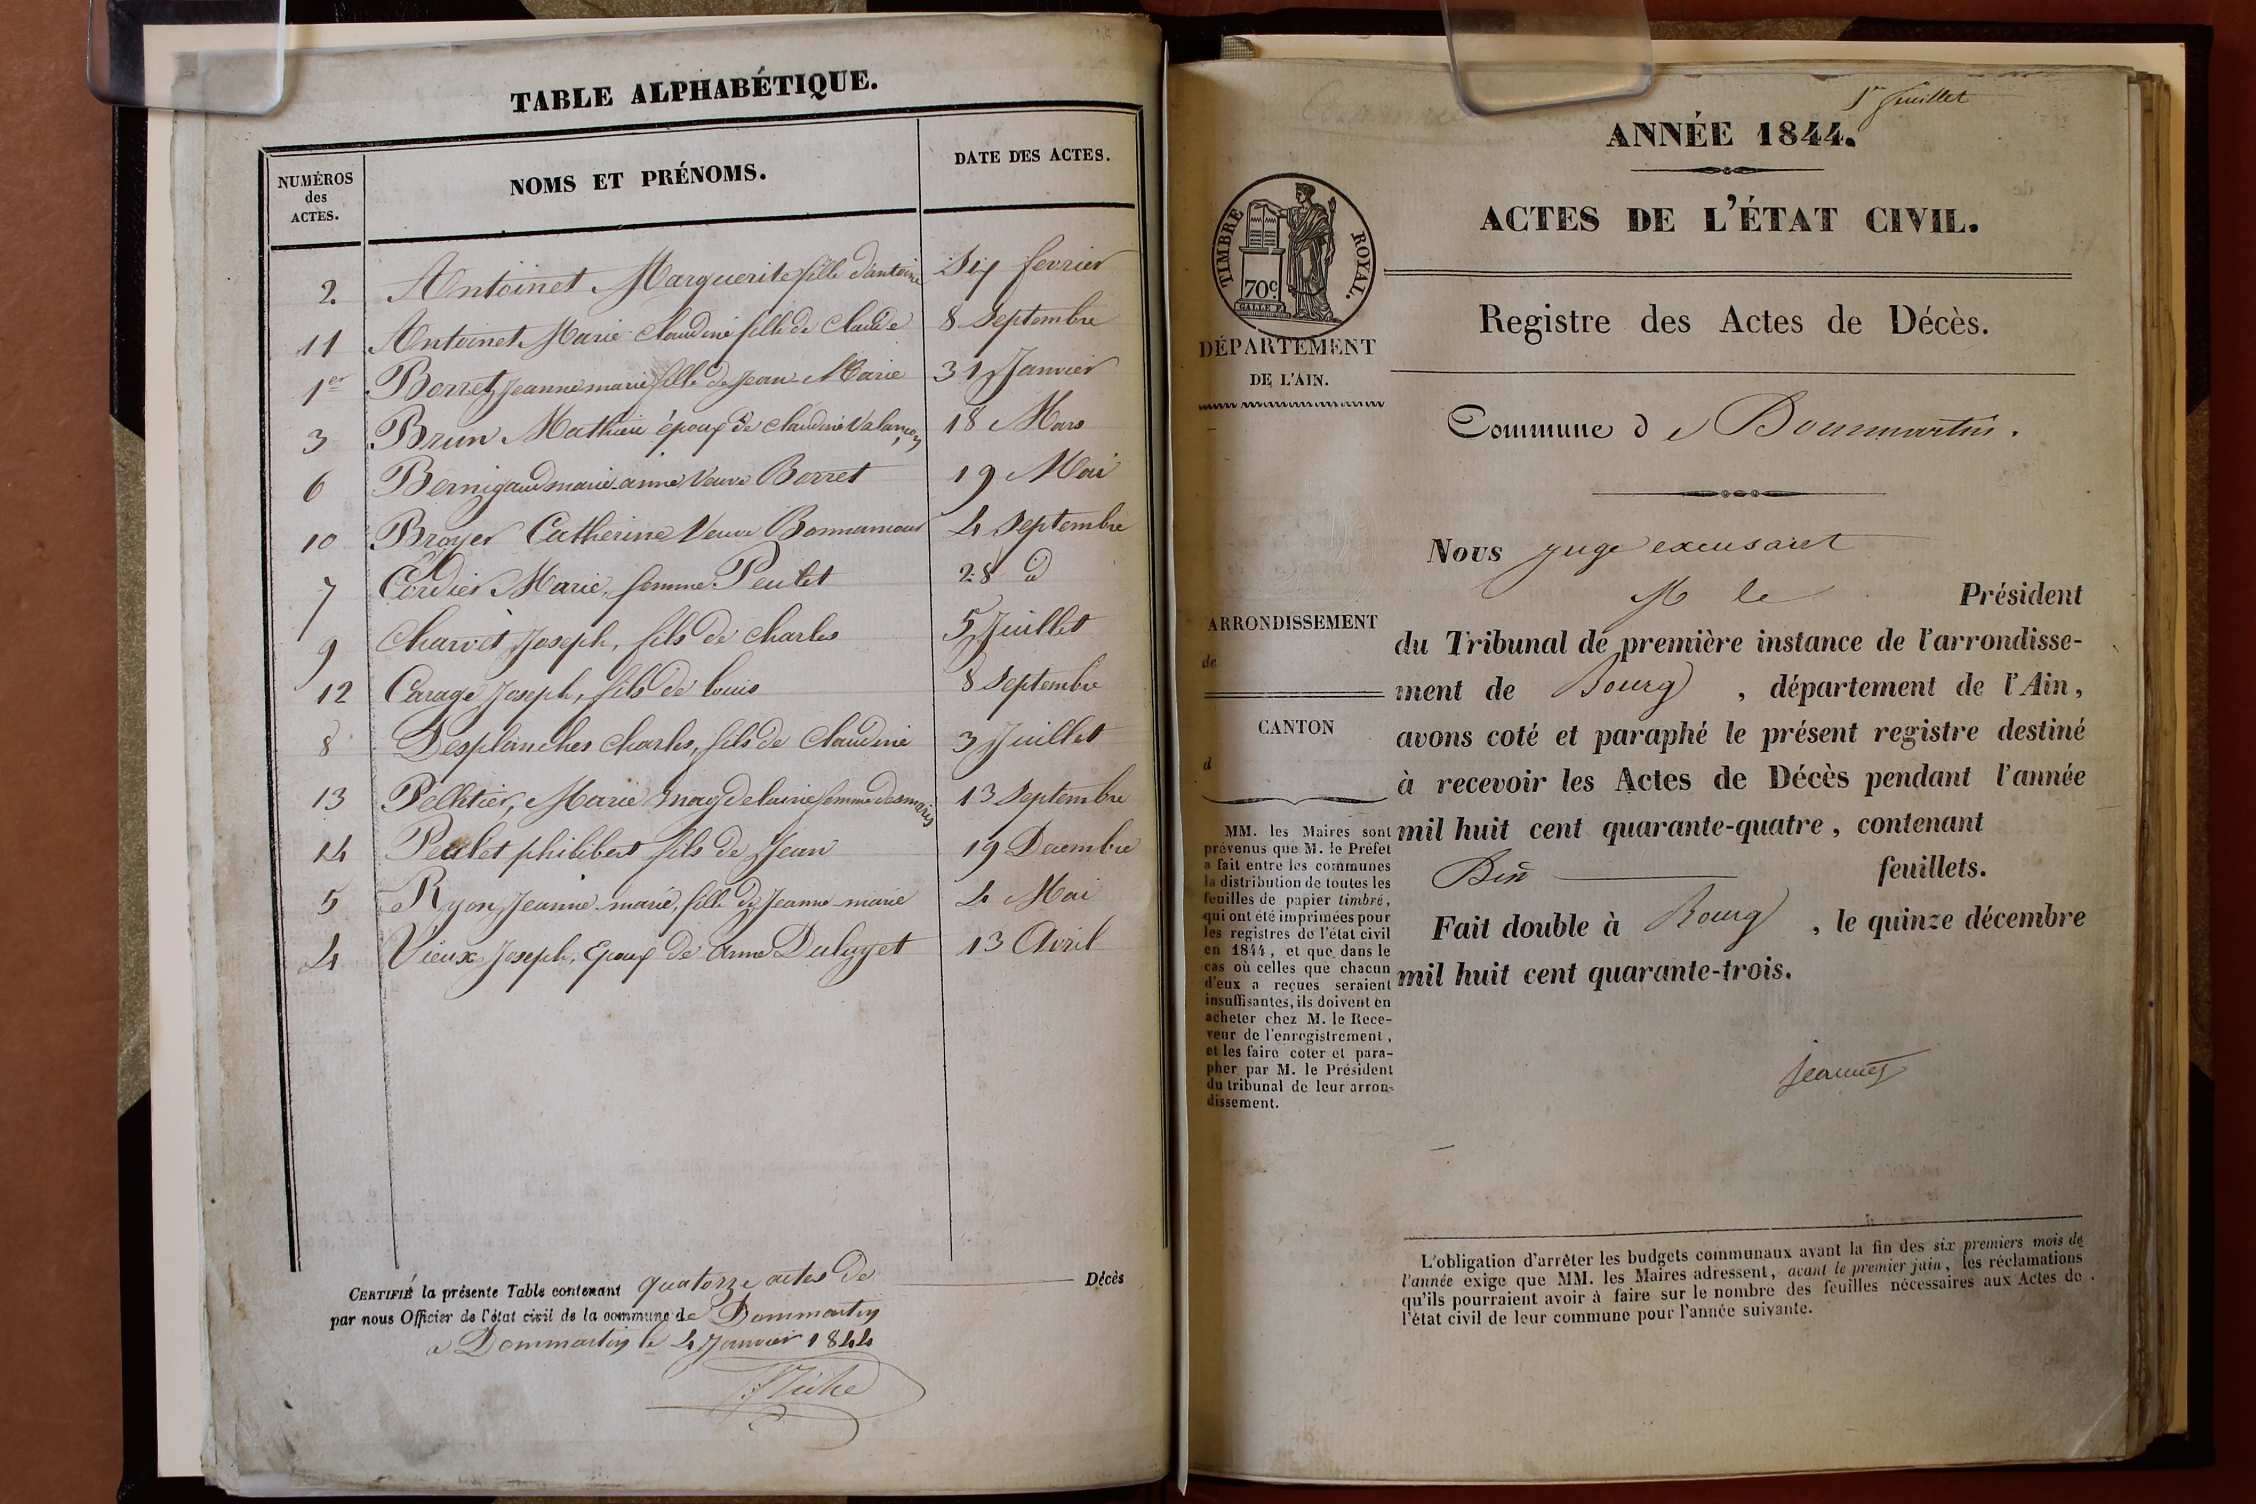 TABLE ALPHABÉTIQUE.
NUMÉROS des ACTES.
NOMS ET PRÉNOMS.
DATE DES ACTES.
2 Antoinet Marguerite fille d'antoine Six fevrier
11 Antoinet Marie Claudine fille de Claude 8 Septembre
1er Borret Jeanne marie fille de Jean Marie 31 Janvier
3 Brun Mathieu époux de Claudine Valançon 18 Mars
6 Bernigaud marie anne Veuve Borret 19 Mai
10 Broyer Catherine Veuve Bonnamour 4 Septembre
7 Cordier Marie, femme Peulet 28 id
9 Charvet Joseph, fils de Charles 5 Juillet
12 Carage Joseph, fils de louis 8 Septembre
8 Desplanches Charles, fils de Claudine 3 Juillet
13 Pelletier, Marie magdelaine femme desmaris 13 Septembre
14 Peulet philibert fils de Jean 19 Decembre
5 Ryon Jeanne-marie, fille de Jeanne-marie 4 Mai
4 Vieux Joseph, Epoux de anne Duluyet 13 Avril
CERTIFIÉ la présente Table contenant quatorze actes de Décès
par nous Officier de l'état civil de la commune de Dommartin
a Dommartin le 4 Janvier 1844
1er feuillet
ANNÉE 1844.
ACTES DE L'ÉTAT CIVIL.
TIMBRE ROYAL.
70c
DÉPARTEMENT
DE L'AIN.
Registre des Actes de Décès.
Commune de Dommartin.
Nous juge excusant
M le Président
du Tribunal de première instance de l'arrondisse-
ment de Bourg, département de l'Ain,
avons coté et paraphé le présent registre destiné
à recevoir les Actes de Décès pendant l'année
mil huit cent quarante-quatre, contenant
feuillets.
Fait double à Bourg, le quinze décembre
mil huit cent quarante-trois.
ARRONDISSEMENT
de
CANTON
d
MM. les Maires sont
prévenus que M. le Préfet
a fait entre les communes
la distribution de toutes les
feuilles de papier timbré,
qui ont été imprimées pour
les registres de l'état civil
en 1844, et que dans le
cas où celles que chacun
d'eux a reçues seraient
insuffisantes, ils doivent en
acheter chez M. le Rece-
veur de l'enregistrement,
et les faire coter et para-
pher par M. le Président
du tribunal de leur arron-
dissement.
L'obligation d'arrêter les budgets communaux avant la fin des six premiers mois de
l'année exige que MM. les Maires adressent, avant le premier juin, les réclamations
qu'ils pourraient avoir à faire sur le nombre des feuilles nécessaires aux Actes de
l'état civil de leur commune pour l'année suivante.